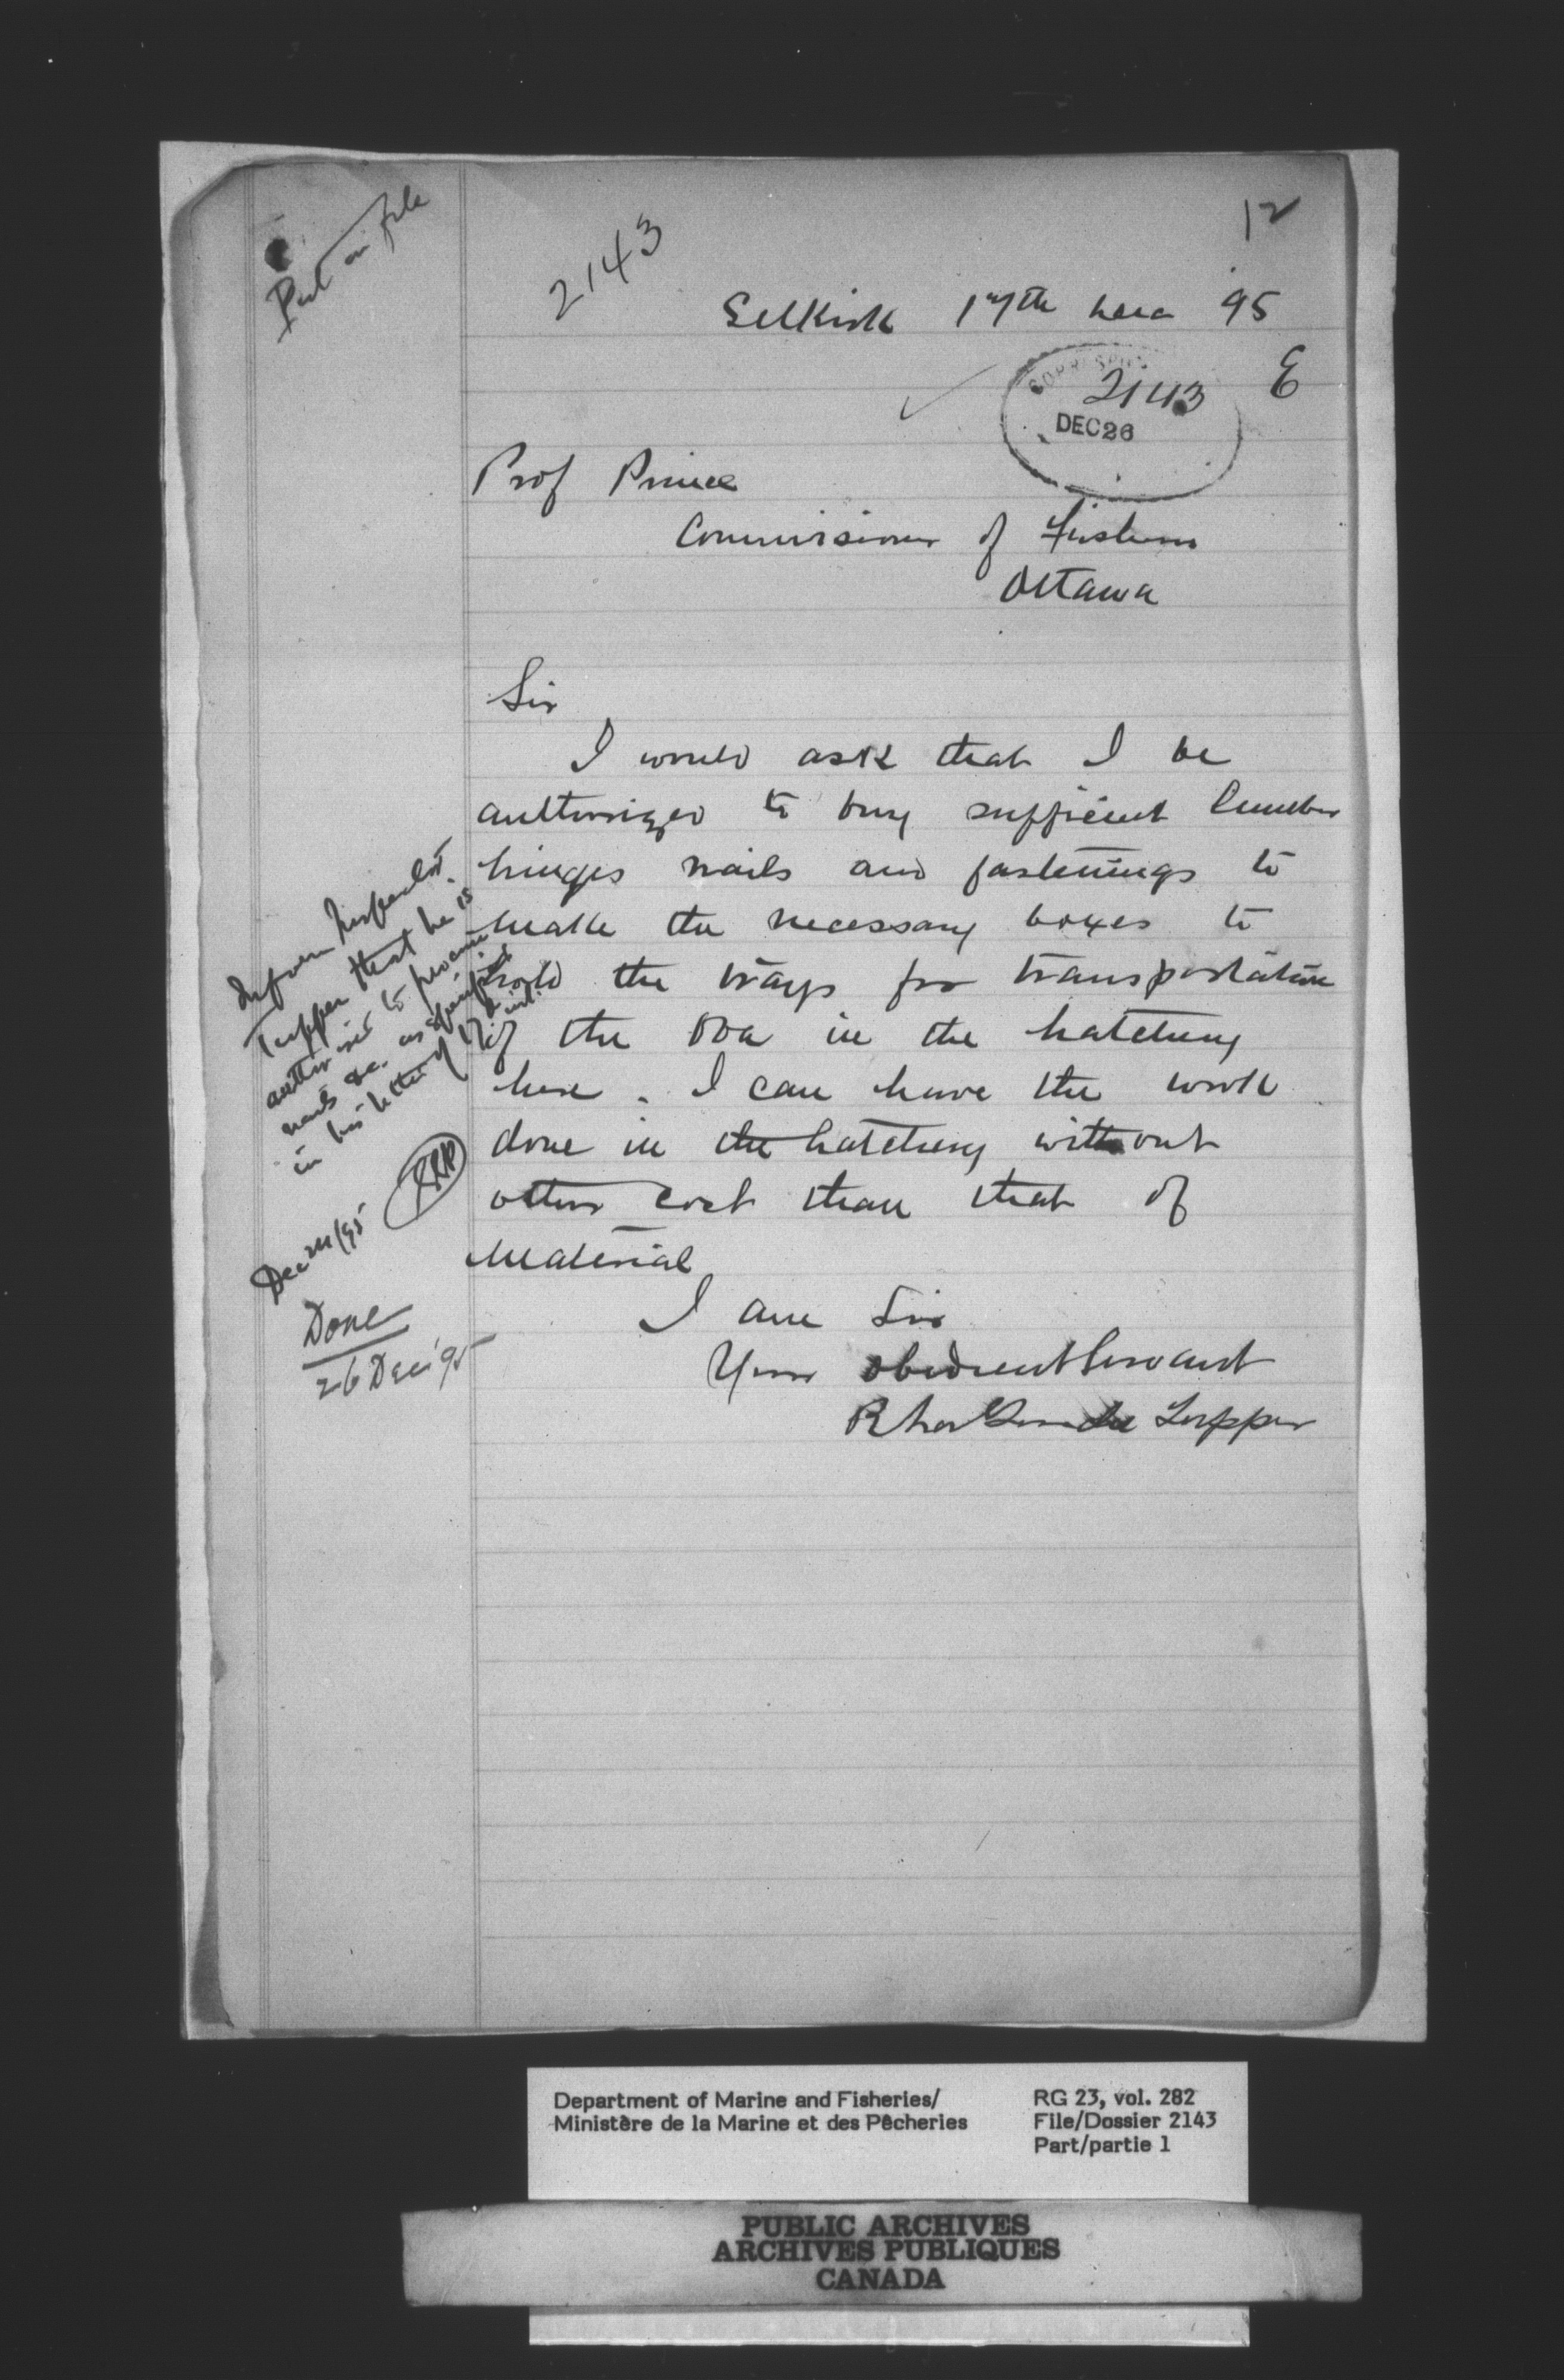 Put on file
2143
12
Selkirk 17th Dec 95
2143
DEC 26
E
Prof Prince
Commissioner of Fisheries
Ottawa
Sir
I would ask that I be
authorized to buy sufficient lumber
hinges nails and fastenings to
make the necessary boxes to
hold the trays for transportation
of the ova in the hatchery
here. I can have the work
done in the hatchery without
other cost than that of
material
I am Sir
Your obedient servant
Tupper
Inform Inspector
Tupper that he is
authorised to procure
nails &c. as specified
in his letter of 17th inst.
Dec 24/95
Done
26 Dec '95
Department of Marine and Fisheries/
Ministère de la Marine et des Pêcheries
RG 23, vol. 282
File/Dossier 2143
Part/partie 1
PUBLIC ARCHIVES
ARCHIVES PUBLIQUES
CANADA